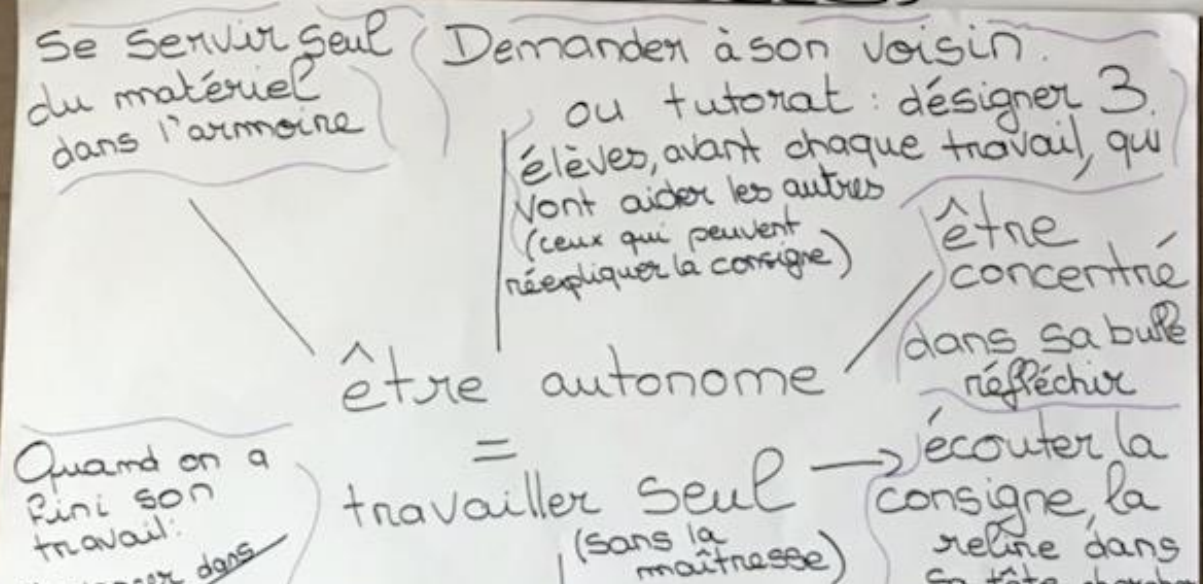 Se servir seul
du matériel
dans l'armoire
Demander à son voisin.
ou tutorat : désigner 3
élèves, avant chaque travail, qui
vont aider les autres
(ceux qui peuvent
réexpliquer la consigne)
être
concentré
dans sa bulle
réfléchir
être autonome
=
travailler seul
(sans la
maîtresse)
écouter la
consigne, la
relire dans
sa tête
Quand on a
fini son
travail:
dans